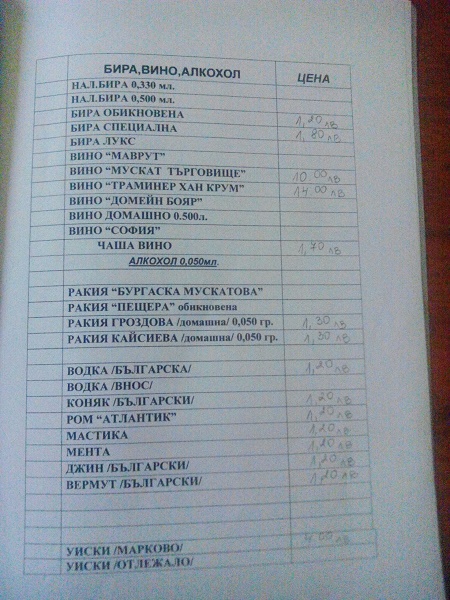 БИРА,ВИНО,АЛКОХОЛ ЦЕНА
НАЛ.БИРА 0,330 мл.
НАЛ.БИРА 0,500 мл.
БИРА ОБИКНОВЕНА 1,20 лв
БИРА СПЕЦИАЛНА 1,80 лв
БИРА ЛУКС
ВИНО “МАВРУТ”
ВИНО “МУСКАТ ТЪРГОВИЩЕ” 10,00 лв
ВИНО “ТРАМИНЕР ХАН КРУМ” 14,00 лв
ВИНО “ДОМЕЙН БОЯР”
ВИНО ДОМАШНО 0.500л.
ВИНО “СОФИЯ”
ЧАША ВИНО 1,70 лв
АЛКОХОЛ 0,050мл.
РАКИЯ “БУРГАСКА МУСКАТОВА”
РАКИЯ “ПЕЩЕРА” обикновена
РАКИЯ ГРОЗДОВА /домашна/ 0,050 гр. 1,30 лв
РАКИЯ КАЙСИЕВА /домашна/ 0,050 гр. 1,30 лв
ВОДКА /БЪЛГАРСКА/ 1,20 лв
ВОДКА /ВНОС/
КОНЯК /БЪЛГАРСКИ/ 1,20 лв
РОМ “АТЛАНТИК” 1,20 лв
МАСТИКА 1,20 лв
МЕНТА 1,20 лв
ДЖИН /БЪЛГАРСКИ/ 1,20 лв
ВЕРМУТ /БЪЛГАРСКИ/ 1,20 лв
УИСКИ /МАРКОВО/ 4,00 лв
УИСКИ /ОТЛЕЖАЛО/